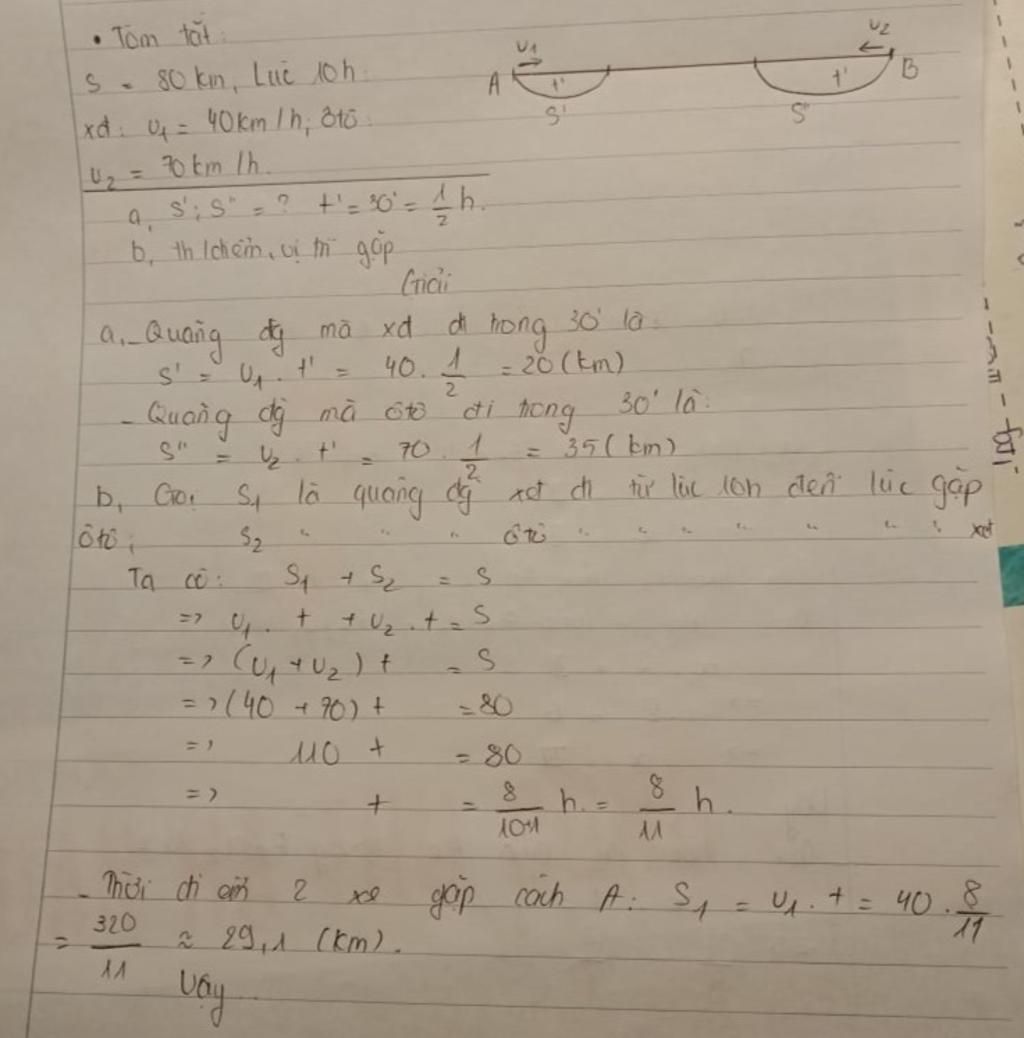 • Tóm tắt:
S = 80 km, Lúc 10h:
xđ: v₁ = 40km/h; ôtô:
v₂ = 70 km/h.
v₁
v₂
A
t'
S'
t'
S"
B
a, S'; S" = ? t' = 30' = 1/2 h.
b, th/điểm, vị trí gặp
Giải
a, - Quãng đg mà xđ đi trong 30' là:
S' = v₁ . t' = 40 . 1/2 = 20 (km)
- Quãng đg mà ôtô đi trong 30' là:
S" = v₂ . t' = 70 . 1/2 = 35 (km)
b, Gọi S₁ là quãng đg xđ đi từ lúc 10h đến lúc gặp
ôtô; S₂ " " " ôtô " " " " " " " xđ
Ta có: S₁ + S₂ = S
=> v₁ . t + v₂ . t = S
=> (v₁ + v₂) t = S
=> (40 + 70) t = 80
=> 110 t = 80
=> t = 8/ h. = 8/11 h.
- Thời điểm 2 xe gặp cách A: S₁ = v₁ . t = 40 . 8/11
= 320/11 ≈ 29,1 (km).
Vậy